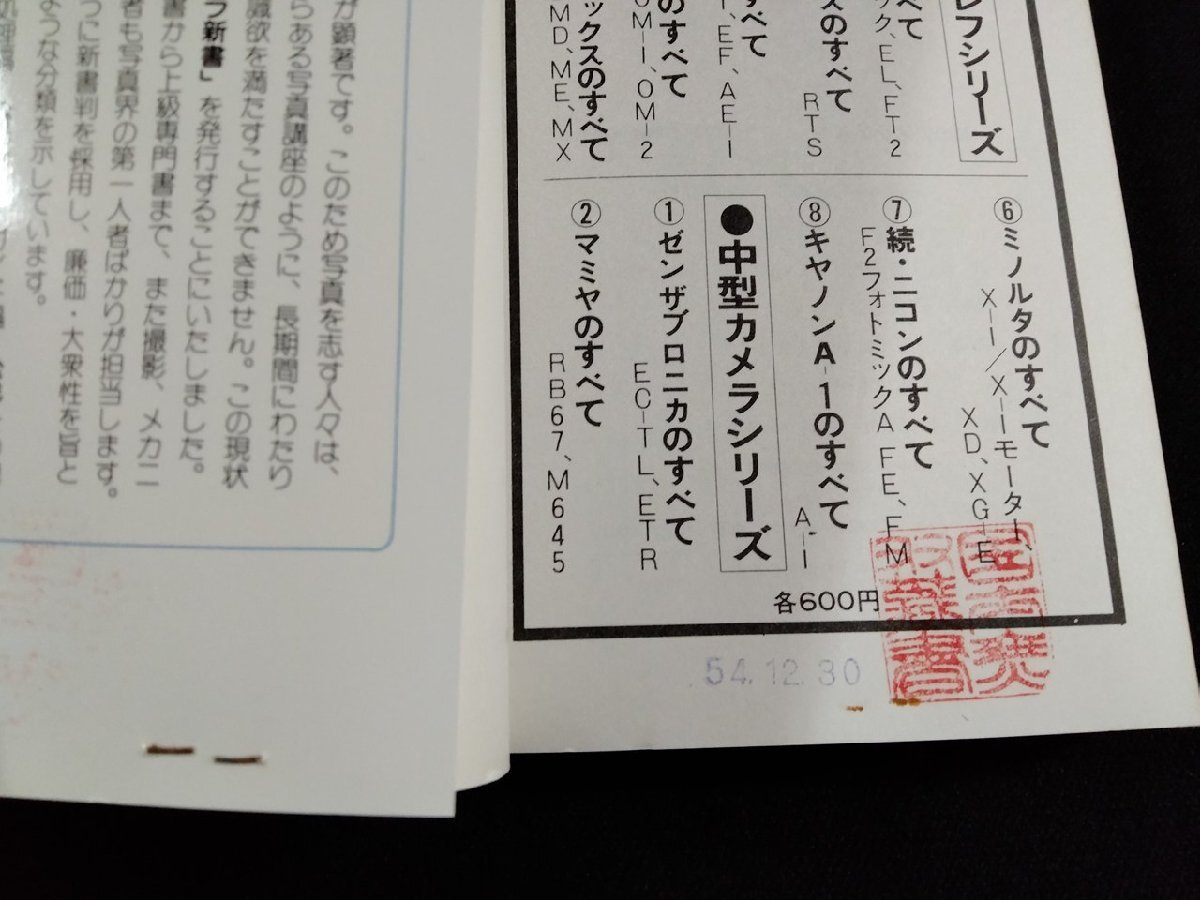 レフシリーズ
べて
ック、EL、FT2
スのすべて
RTS
すべて
、EF、AE-1
のすべて
OM-1、OM-2
ックスのすべて
MD、ME、MX
⑥ミノルタのすべて
X-1/X-1モーター、
XD、XG-E
⑦続・ニコンのすべて
F2フォトミックA FE、FM
⑧キヤノンA-1のすべて
A-1
●中型カメラシリーズ
①ゼンザブロニカのすべて
EC-TL、ETR
②マミヤのすべて
RB67、M645
各600円
54.12.30
が顕著です。このため写真を志す人々は、
らある写真講座のように、長期間にわたり
識欲を満たすことができません。この現状
フ新書」を発行することにいたしました。
書から上級専門書まで、また撮影、メカニ
者も写真界の第一人者ばかりが担当します。
うに新書判を採用し、廉価・大衆性を旨と
ような分類を示しています。